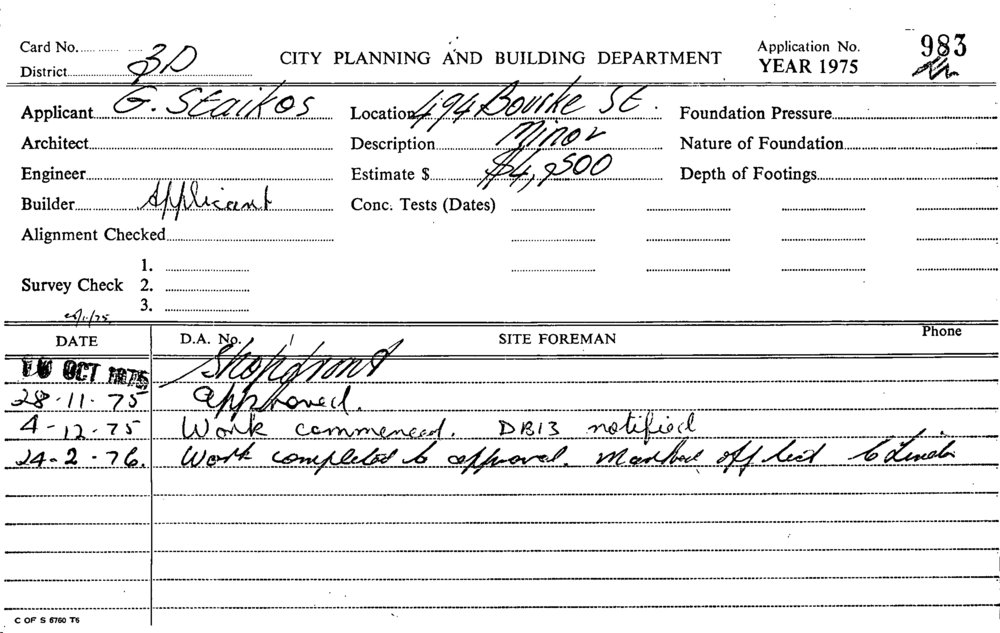 Card No. 3D
CITY PLANNING AND BUILDING DEPARTMENT
Application No. 983
District
YEAR 1975
Applicant G. Staikos Location 494 Bourke St. Foundation Pressure
Architect Description Minor Nature of Foundation
Engineer Estimate $ $4,500 Depth of Footings
Builder Applicant Conc. Tests (Dates)
Alignment Checked
1.
Survey Check 2.
3.
DATE D.A. No. SITE FOREMAN Phone
10 OCT 1975 Shopfront
28-11-75 Approved.
4-12-75 Work commenced. DB13 notified
24-2-76. Work completed to approval. Marked off
C OF S 6760 T6